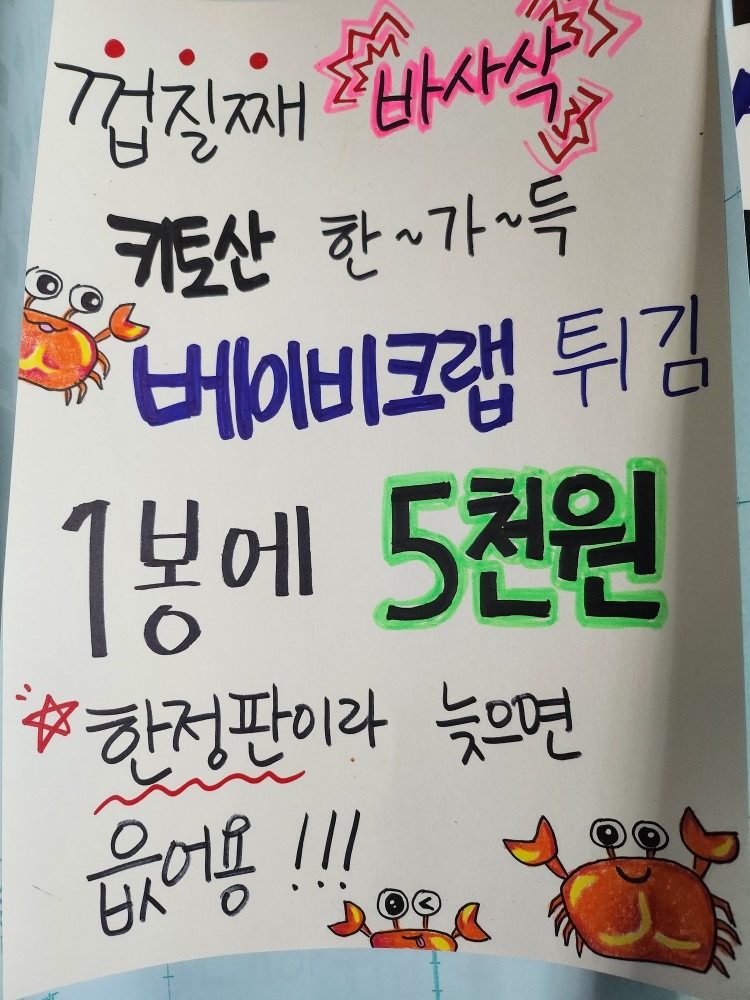 껍질째 바사삭
키토산 한~가~득
베이비크랩 튀김
1봉에 5천원
한정판이라 늦으면
읎어용 !!!